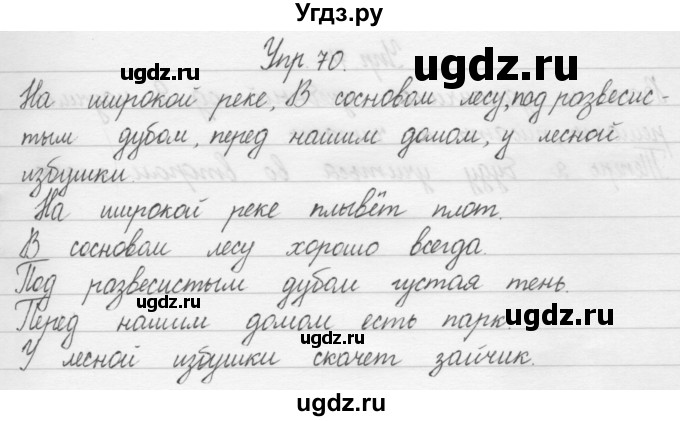 Угдз.ру
Упр. 70.
ugdz.ru
На широкой реке, В сосновом лесу, под развесис-
ugdz.ru
тым дубом, перед нашим домом, у лесной
избушки.
ugdz.ru
На широкой реке плывёт плот.
В сосновом лесу хорошо всегда.
ugdz.ru
Под развесистым дубом густая тень.
ugdz.ru
Перед нашим домом есть парк.
ugdz.ru
У лесной избушки скачет зайчик.
ugdz.ru